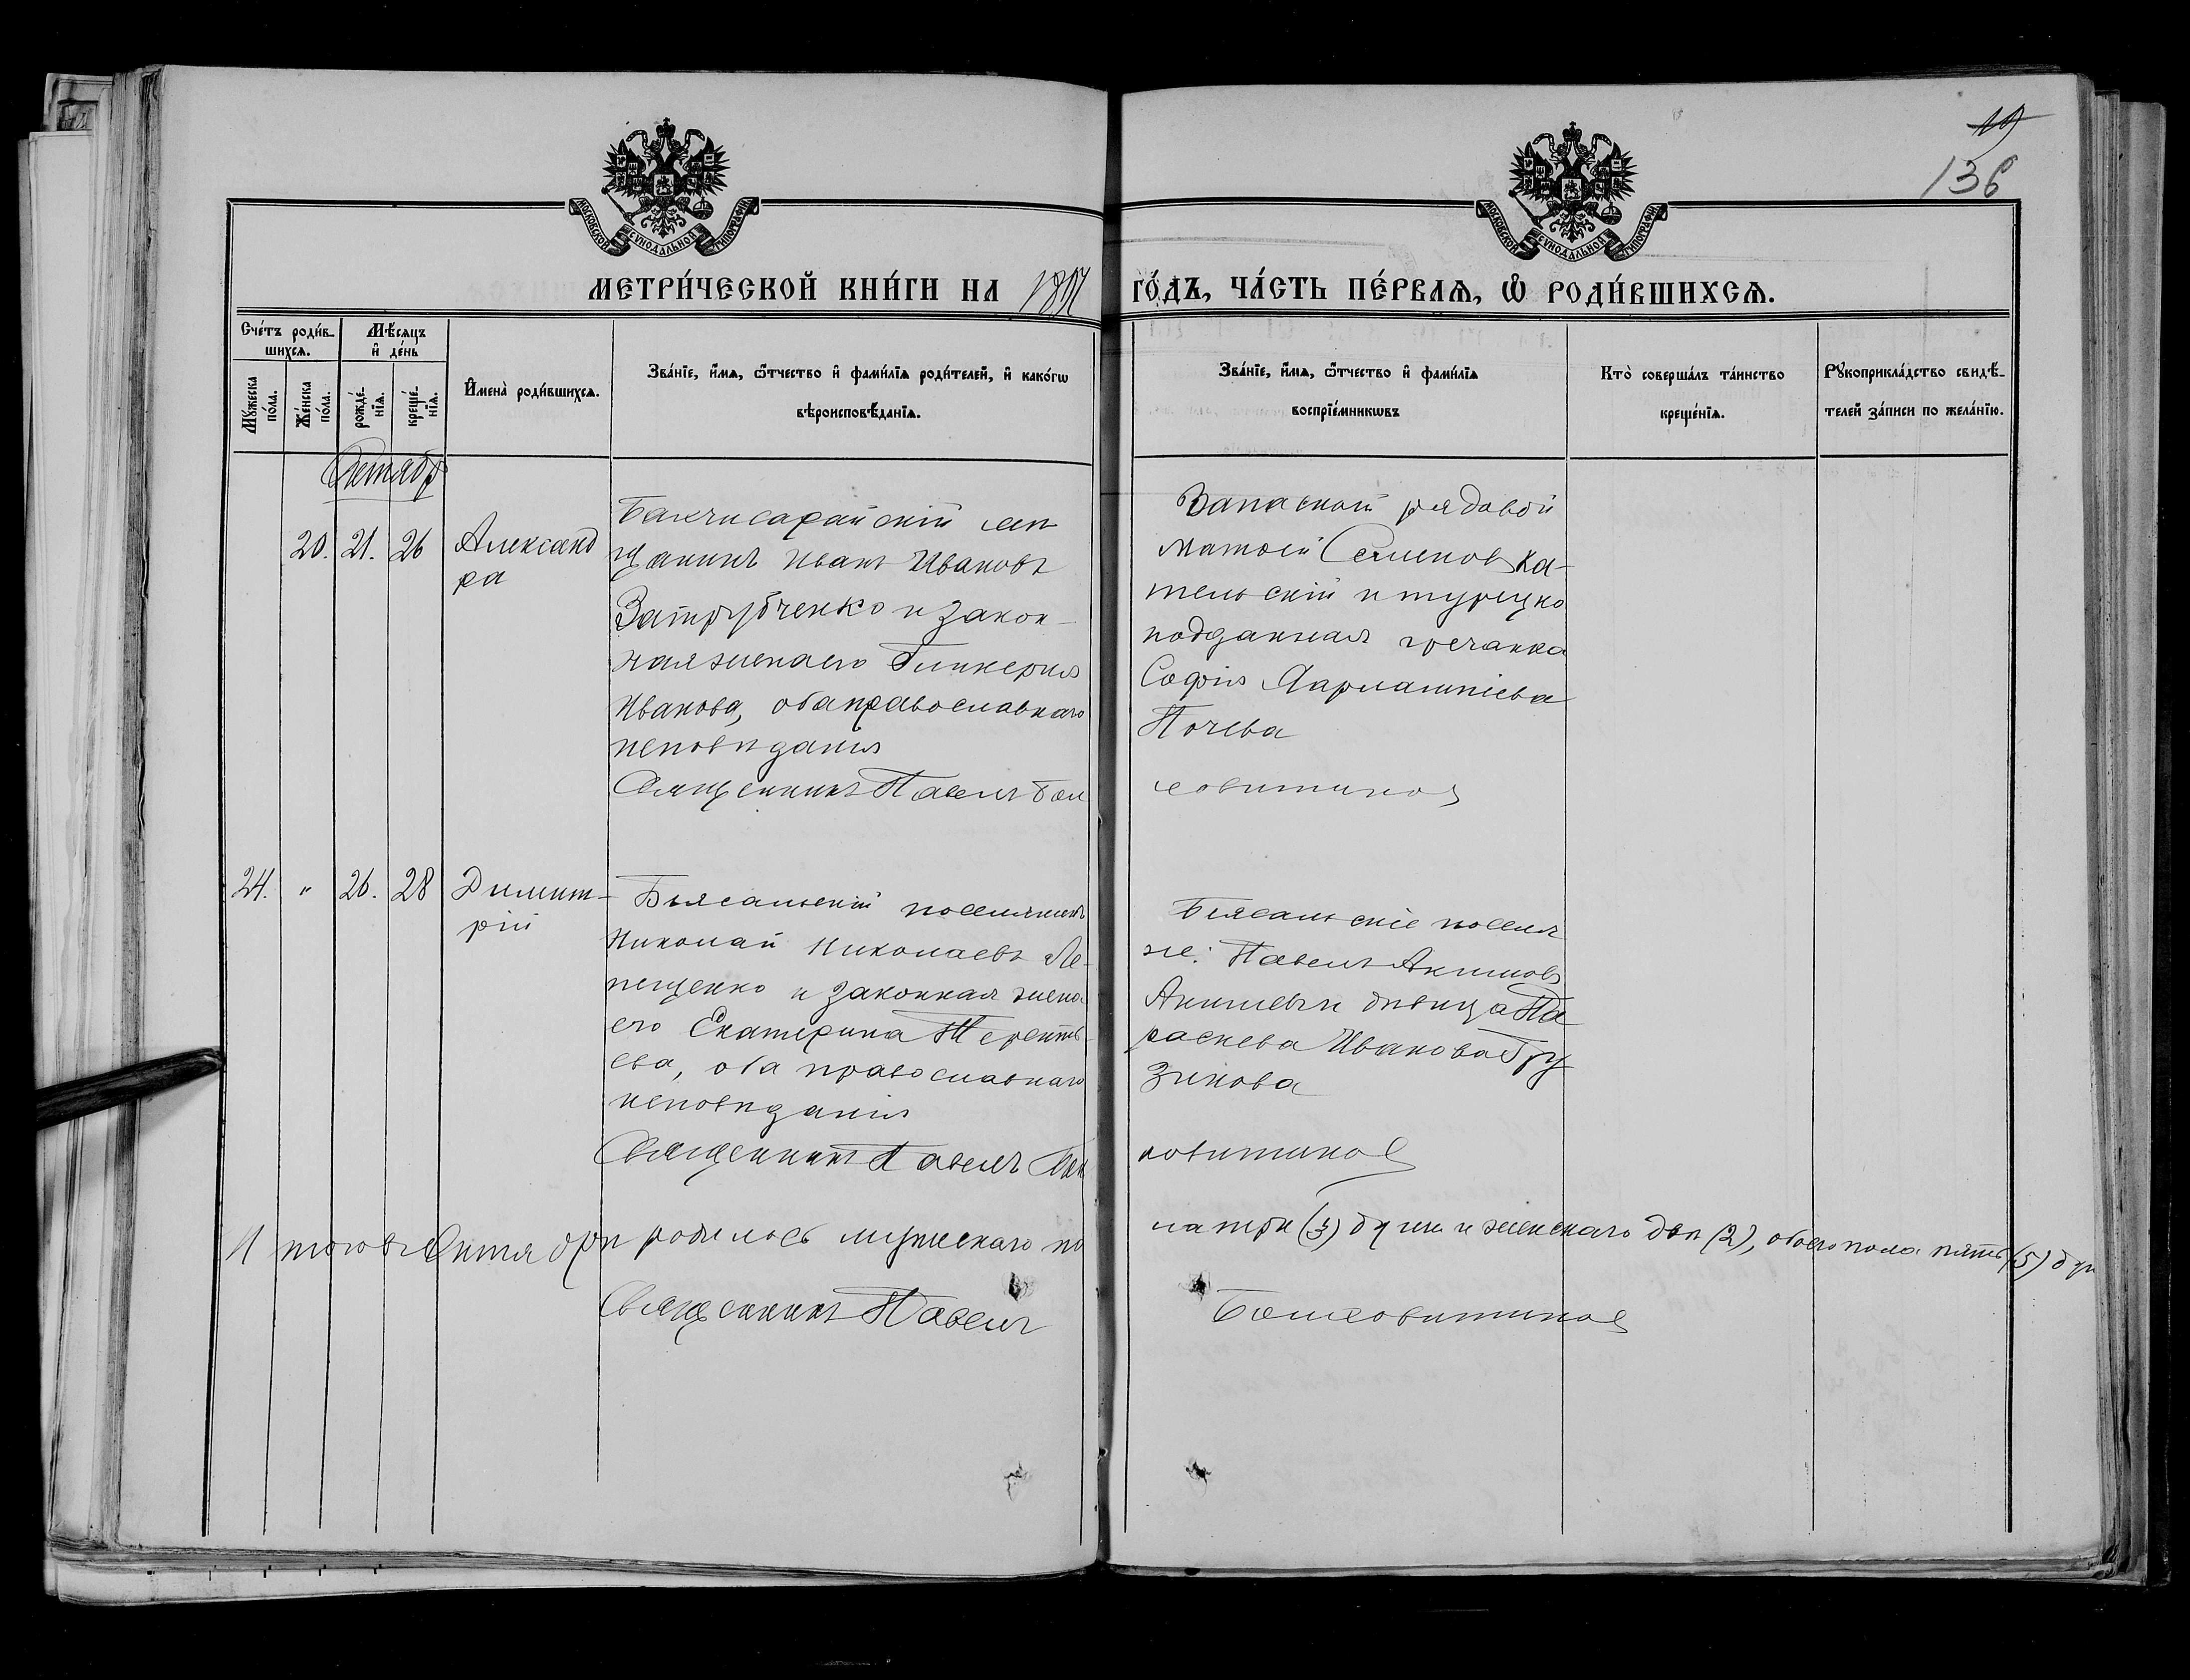 19
136
МОСКОВСКОЙ СѴНОДАЛЬНОЙ ТИПОГРАФІИ
МОСКОВСКОЙ СѴНОДАЛЬНОЙ ТИПОГРАФІИ
МЕТРИ́ЧЕСКОЙ КНИ́ГИ НА
ГО́ДЪ, ЧА́СТЬ ПЕ́РВАѦ, Ѡ҆ РОДИ́ВШИХСѦ.
Счéтъ роди́в-
шихсѧ.
Мѣ́сѧцъ
и҆ де́нь
Мꙋ́жеска
по́ла.
Же́нска
по́ла.
рожде́-
нїѧ.
креще́-
нїѧ.
И҆мена̀ роди́вшихсѧ.
Зва́нїе, и҆́мѧ, ѻ҆́тчество и҆ фами́лїѧ роди́телей, и҆ како́гѡ
вѣроисповѣ́данїѧ.
Зва́нїе, и҆́мѧ, ѻ҆́тчество и҆ фами́лїѧ
воспрїе́мникѡвъ
Кто̀ соверша́лъ та́инство
креще́нїѧ.
Рꙋкоприкла́дство свидѣ́-
телей за́писи по жела́нїю.
Октябр
20. 21. 26 Александ
ра
Бахчисарайскій мѣ
щанинъ Иванъ Ивановъ
Затрубченко и закон-
ная жена его Гликерия
Иванова, оба православнаго
исповѣданія
Священникъ Павелъ Бол
Запасной рядовой
Матвей Семенов Ка-
тельскій и турецко
подданная гречанка
София
Почева
ховитинов
24. " 26. 28 Димит-
рій
Біясальскій поселянинъ
Николай Николаевъ Ле-
пещенко и законная жена
его Екатерина Терентьева
ева, оба православнаго
исповѣданія
Священникъ Павелъ Бол
Біясальскіе поселя
не: Павелъ Акимовъ
Акимевъ и дѣвица Па
раскева Иванова Гру
зинова
ховитинов
Итого въ Октябрѣ родилось мужескаго по
ла три (3) души и женскаго двѣ (2), обоего пола пять (5) душ
Священникъ Павелъ
Болховитинов